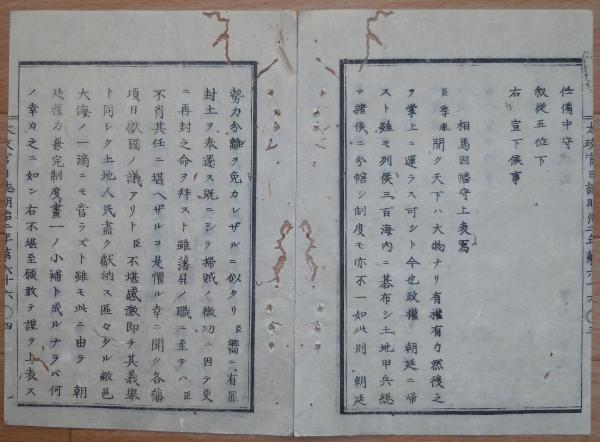 任備中守
叙従五位下
右 宣下候事
相馬因幡守上表寫
臣季胤聞ク天下ハ大物ナリ有權有力然後之
ヲ掌上ニ運ラス可シト今也政權 朝廷ニ歸
スト雖モ列侯三百海内ニ碁布シ土地甲兵總
テ諸侯ニ分轄シ制度モ亦不一如此則 朝廷
勢力分離ヲ免カレザルニ似タリ臣嚮ニ有罪
封土ヲ奉還ス既ニシテ掃賊ノ微功ニ因テ更
ニ再封之命ヲ拜スト雖藩屏ノ職ニ至テハ臣
不肖其任ニ堪ヘザルヲ是懼ル幸ニ聞ク各藩
頃日獻國ノ議アリト臣不堪感激即チ其義擧
ト同シク土地人民盡ク獻納ス區々タル敝邑
大海ノ一滴ニモ啻ラズト雖モ此ニ由テ 朝
廷權力兼完制度畫一ノ小補ト成ルナラバ何
ノ幸カ之ニ如ン右不堪至願敢テ謹テ上表ス
太政官日誌明治二年第六十六 〇三
太政官日誌明治二年第六十六 〇四